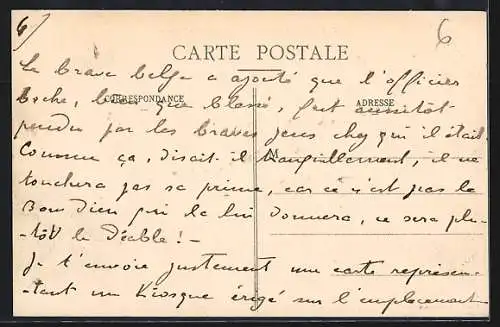 6)
6
CARTE POSTALE
Le brave belge a ajouté que l'officier
CORRESPONDANCE
ADRESSE
boche, bien que blessé, fut aussitôt
pendu par les braves gens chez qui il était.
M
Comme ça, disait-il tranquillement, il ne
touchera pas sa prime, car ce n'est pas le
Bon Dieu qui la lui donnera, ce sera plu-
-tôt le Diable! -
Je t'envoie justement une carte représen-
-tant un Kiosque érigé sur l'emplacement